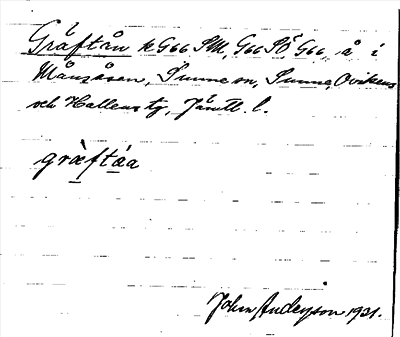 Gräftån k G66 SM, G66 SÖ, G66, å i
Månsåsen, Sunne sn, Sunne, Ovikens
och Hallens tg, Jämtl. l.
græ̀ftá̱a
John Anderson 1931.